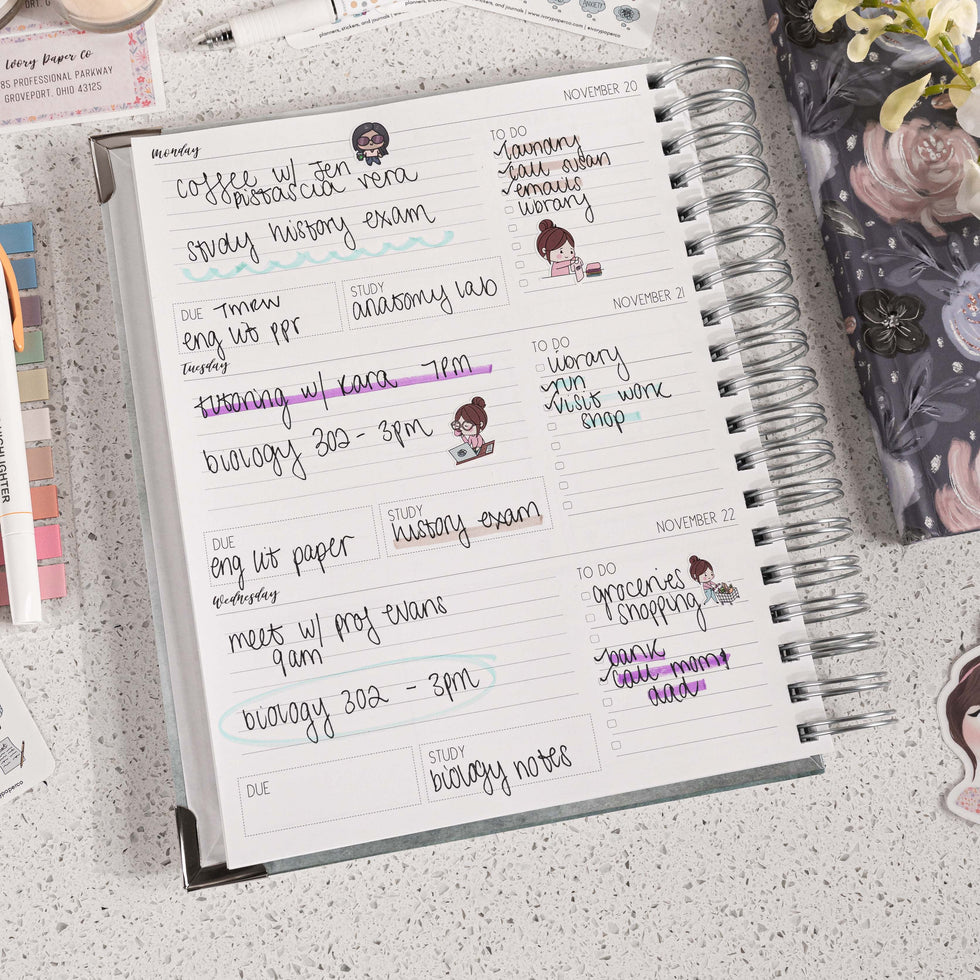 planners, stickers, and journals | www.ivorypaperco
planners, stickers, and journals | @ivorypaperco
ANXIETY
Ivory Paper Co
85 PROFESSIONAL PARKWAY
GROVEPORT, OHIO 43125
HIGHLIGHTER
NOVEMBER 20
Monday
coffee w/ Jen
pistascia vera
study history exam
DUE Tmrw
eng lit ppr
STUDY
anatomy lab
TO DO
laundry
call susan
emails
library
NOVEMBER 21
Tuesday
tutoring w/ kara 7pm
biology 302 - 3pm
DUE
eng lit paper
STUDY
history exam
TO DO
library
run
visit work
shop
NOVEMBER 22
Wednesday
meet w/ prof evans
9am
biology 302 - 3pm
DUE
STUDY
biology notes
TO DO
groceries
shopping
bank
call mom +
dad